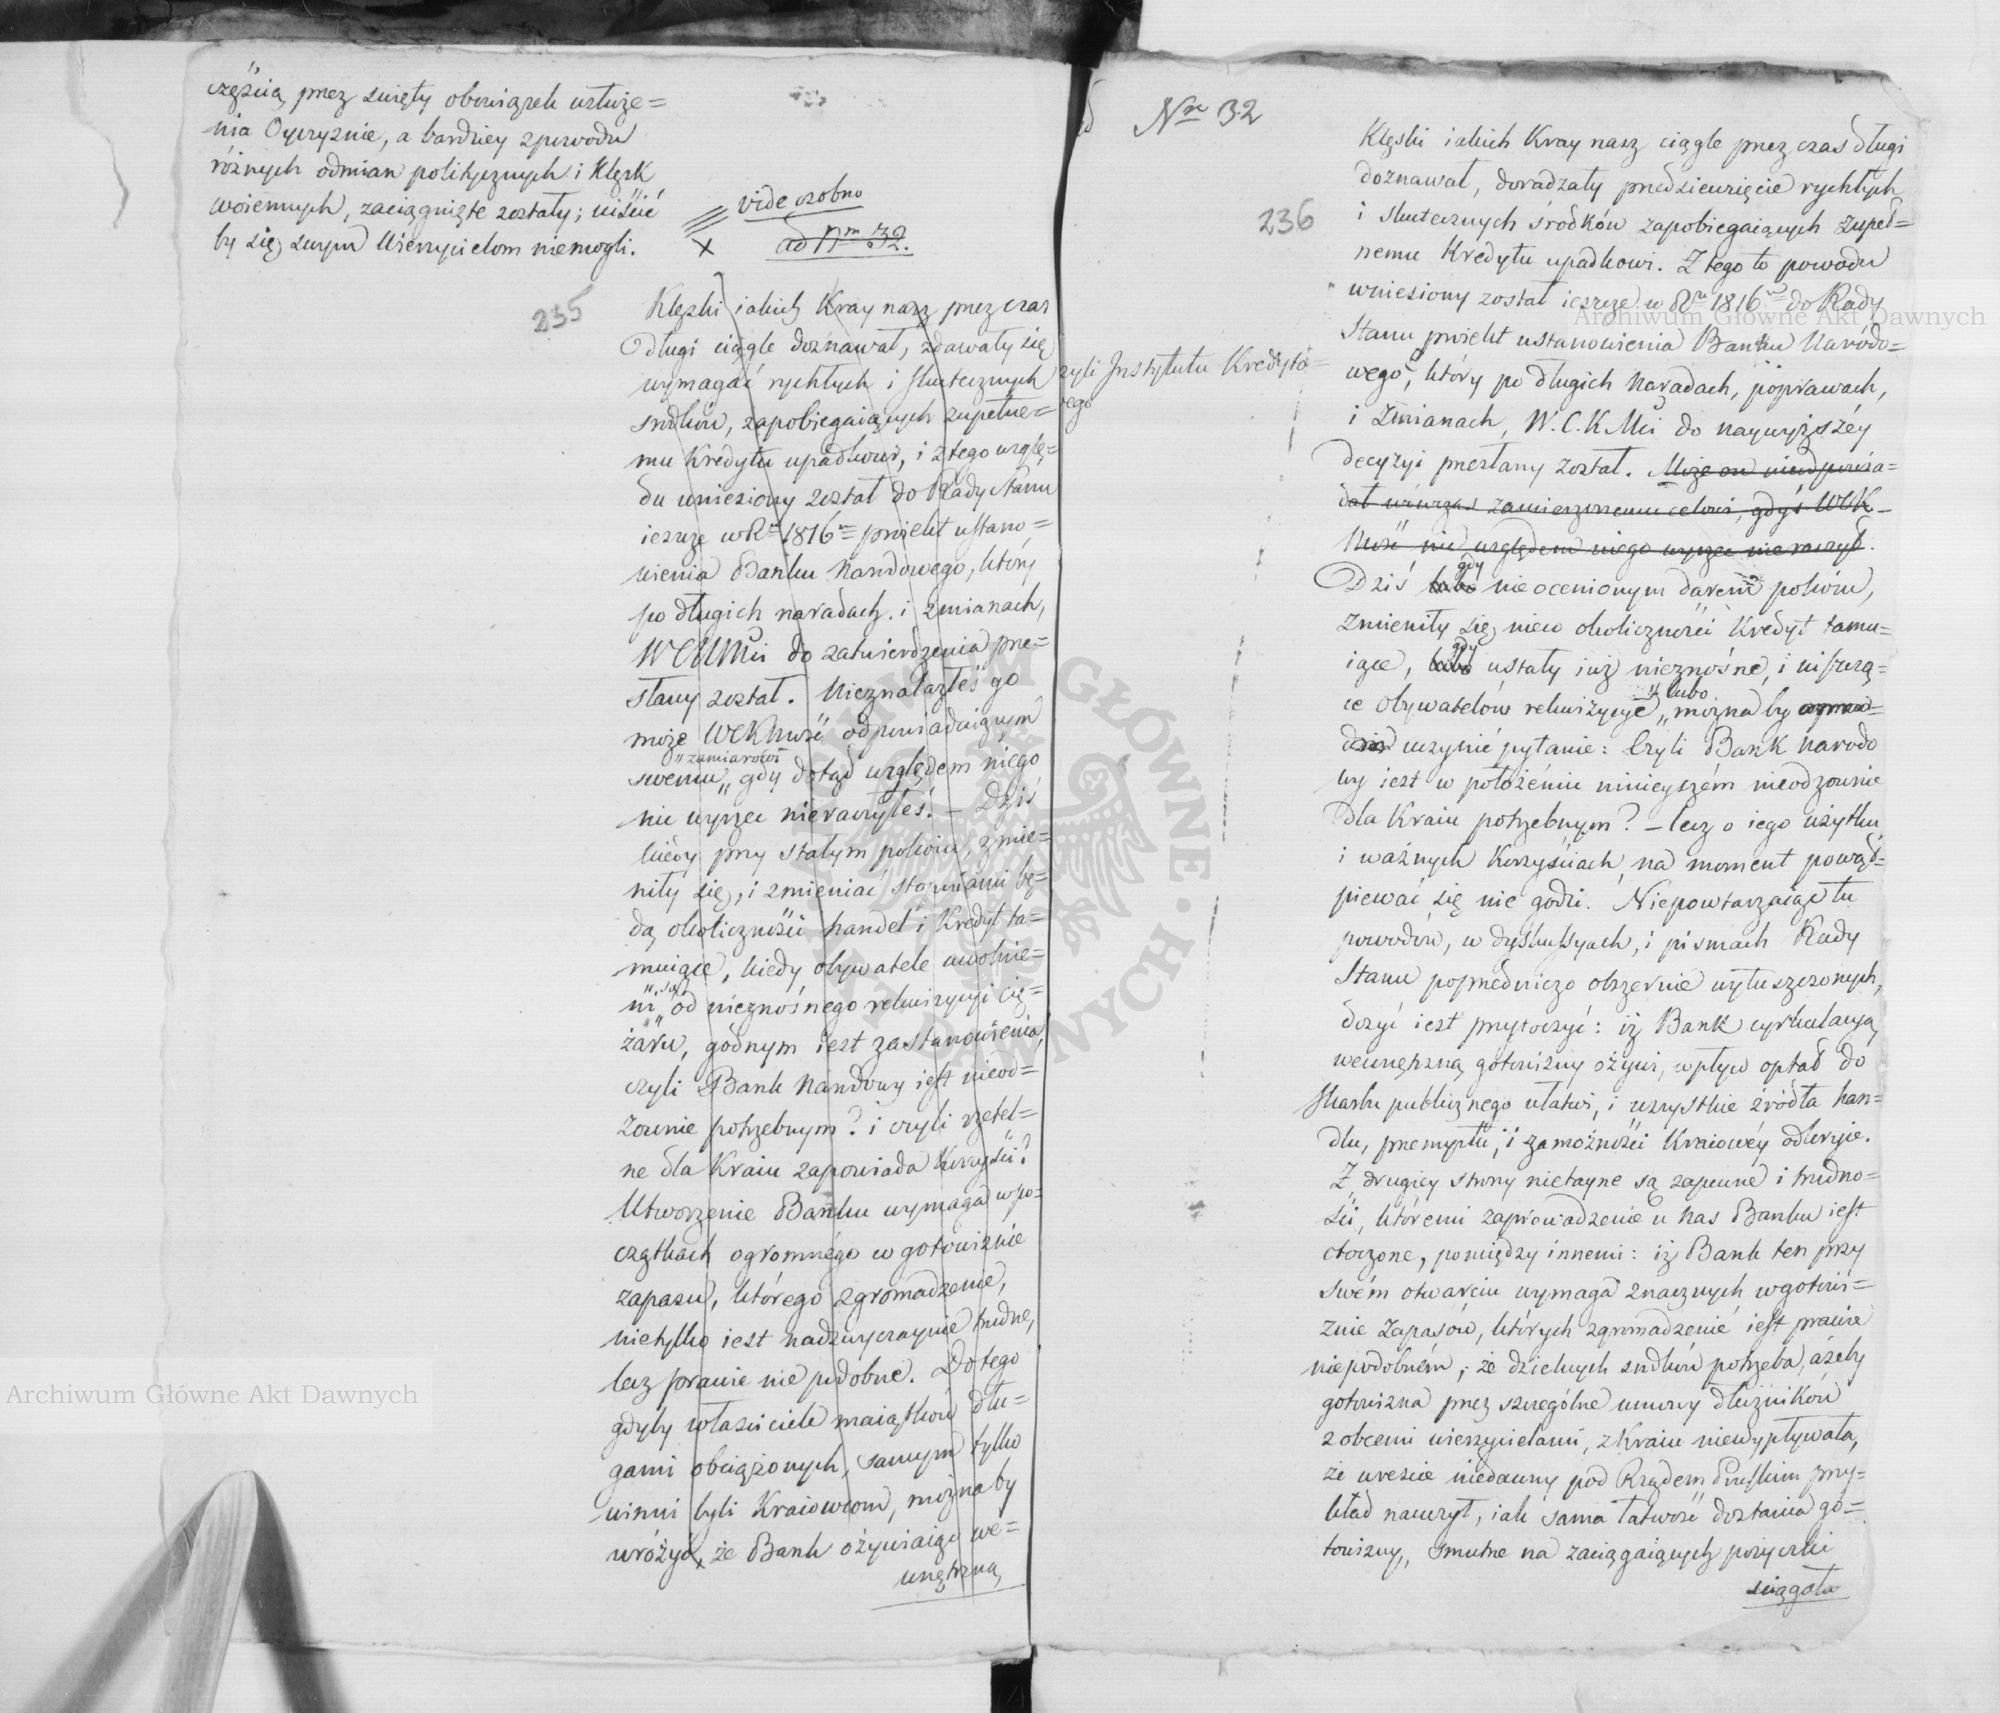 częścią przez święty obowiązek usłuże=
nia Oyczyznie, a bardziey z powodu
różnych odmian politycznych i klęsk
woiennych, zaciągnięte zostały; uiścić
by się swym Wierzycielom niemogli.
vide osobno
ad Nm 32.
235
Klęski iakich Kray nasz przez czas
długi ciągle doznawał, zdawały się
wymagać rychłych i skutecznych
srodków, zapobiegaiących zupełne=
mu Kredytu upadkowi, i z tego wzglę=
du wniesiony został do Rady Stanu
ieszcze w Ru 1816m proiekt ustano=
wienia Banku Narodowego, który
po długich naradach i zmianach,
WCKMci do zatwierdzenia prze=
słany został. Nieznalazłeś go
może WCKMość odpowiadaiącym
zamiarowi
swemu, gdy dotąd względem niego
nic wyrzec nieraczyłeś. – Dziś
kiedy przy stałym pokoiu, zmie=
niły się, i zmieniać stopniami bę=
dą okoliczności handel i Kredyt ta=
muiące, kiedy obywatele uwolnie=
ni są od nieznośnego rekwizycyi cię=
żaru, godnym iest zastanowienia,
czyli Bank Narodowy iest nieod=
zownie potrzebnym? i czyli rzetel=
ne dla Kraiu zapowiada korzyści?
Utworzenie Banku wymaga w po=
czątkach ogromnego w gotowiznie
zapasu, którego zgromadzenie,
nietylko iest nadzwyczaynie trudne,
lecz prawie nie podobne. Do tego
gdyby właściciele maiątków dłu=
gami obciążonych, samym tylko
winni byli Kraiowcom, można by
wróżyć, że Bank ożywiaiąc we=
wnętrzną
Nro 32
236
czyli Instytutu Kredyto=
wego
Klęski iakich Kray nasz ciągle przez czas długi
doznawał, doradzały przedziewzięcie rychłych
i skutecznych środków zapobiegaiących zupeł=
nemu Kredytu upadkowi. Z tego to powodu
wniesiony został ieszcze w Ru 1816m do Rady
Stanu proiekt ustanowienia Banku Narodo=
wego, który po długich naradach, poprawach,
i zmianach, W.C.K Mci do naywyższéy
decyzyi przesłany został. Może on nieodpowia=
dał wówczas zamierzonemu celowi, gdyś WCK
Mość nic względem niego wyrzec nie raczył.
gdy
Dziś lubo nieocenionym darem pokoiu,
zmieniły się nieco okoliczności Kredyt tamu=
gdy
iące, lubo ustały iuż nieznośne, i niszczą=
lubo
ce Obywatelów rekwizycye, można by
uczynić pytanie: Czyli Bank Narodo
wy iest w położeniu ninieyszém nieodzownie
dla Kraiu potrzebnym? – lecz o iego użytku
i ważnych korzyściach, na moment powąt=
piewać się nie godzi. Niepowtarzaiąc tu
powodów, w dyskussyach, i pismach Rady
Stanu poprzedniczo obszernie wyłuszczonych,
dosyć iest przytoczyć: iż Bank cyrkulacyą
wewnętrzną gotowizny ożywi, wpływ opłat do
Skarbu publicznego ułatwi, i wszystkie źródła han=
dlu, przemysłu, i zamożności Kraiowéy odkryie.
Z drugiey strony nietayne są zapewne i trudno=
ści, któremi zaprowadzenie u nas Banku iest
otoczone, pomiędzy innemi: iż Bank ten przy
swém otwarciu wymaga znacznych w gotowi=
znie zapasów, których zgromadzenie iest prawie
niepodobném; że dzielnych srodków potrzeba, ażeby
gotowizna przez szczególne umowy dłużników
z obcemi wierzycielami, z Kraiu niewypływała,
że wreście niedawny pod Rządem Pruskim przy=
kład nauczył, iak sama łatwość dostania go=
towizny, smutne na zaciągaiących pożyczki
sciągała
Archiwum Główne Akt Dawnych
Archiwum Główne Akt Dawnych